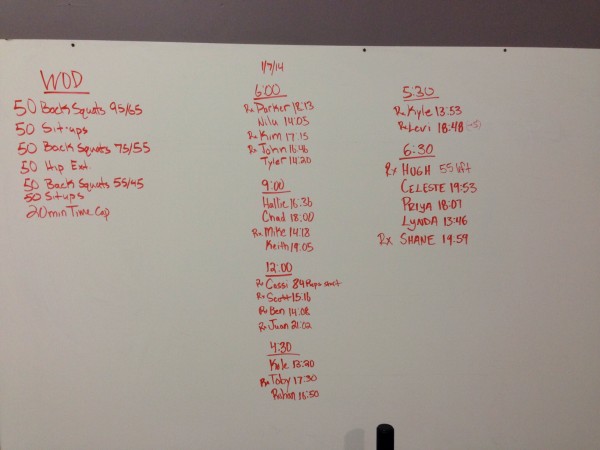 WOD
50 Back Squats 95/65
50 Sit-ups
50 Back Squats 75/55
50 Hip Ext.
50 Back Squats 55/45
50 Situps
20 min Time Cap
1/7/14
6:00
Rx Parker 18:13
Nilu 14:05
Rx Kim 17:15
Rx John 16:46
Tyler 14:20
9:00
Hallie 16:36
Chad 18:00
Rx Mike 14:18
Keith 19:05
12:00
Rx Cassi 84 Reps short
Rx Scott 15:16
Rx Ben 14:08
Rx Juan 21:02
4:30
Kyle 13:20
Rx Toby 17:30
Rohan 16:50
5:30
Rx Kyle 13:53
Rx Levi 18:48
6:30
Rx HUGH 55 left
CELESTE 19:53
PRIYA 18:07
LYNDA 13:46
Rx SHANE 19:59